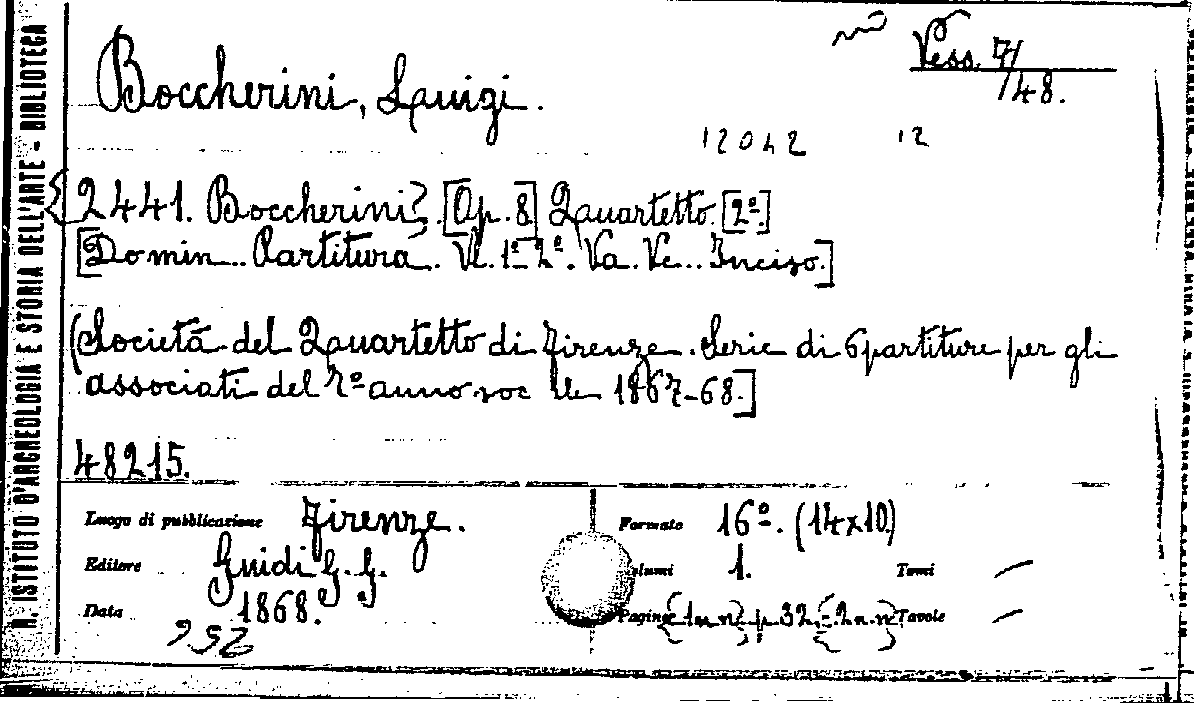 R. ISTITUTO D'ARCHEOLOGIA E STORIA DELL'ARTE - BIBLIOTECA
Vess. 7/
/48.
Boccherini, Luigi.
12042 12
{2441. Boccherini}. [Op. 8] Quartetto. [2º.]
[Do min.. Partitura. Vl. 1º 2º. Va. Vc... Inciso.]
(Società del Quartetto di Firenze. Serie di 6 partiture per gli
associati del 7º anno soc le 1867-68.]
48215.
Luogo di pubblicazione Firenze. Formato 16º. (14x10)
Editore Guidi G. G. Volumi 1. Tomi —
Data 1868. Pagine {1 n n} p. 32. {2 n. n} Tavole —
952